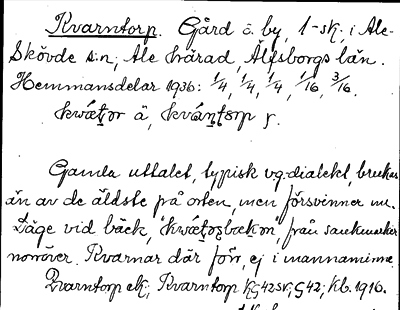 Kvarntorp. Gård o. by, 1-sk. i Ale-
Skövde s:n, Ale härad, Älfsborgs län.
Hemmansdelar 1936: 1/4, 1/4, 1/4, 1/16, 3/16.
ä,
Gamla uttalet, typisk vg.dialekt, brukas
än av de äldste på orten, men försvinner nu.
Läge vid bäck, från
norröver. Kvarnar där förr, ej i mannaminne.
Qvarntorp ek; Kvarntorp Kg42sv; G42; Kb. 1916.